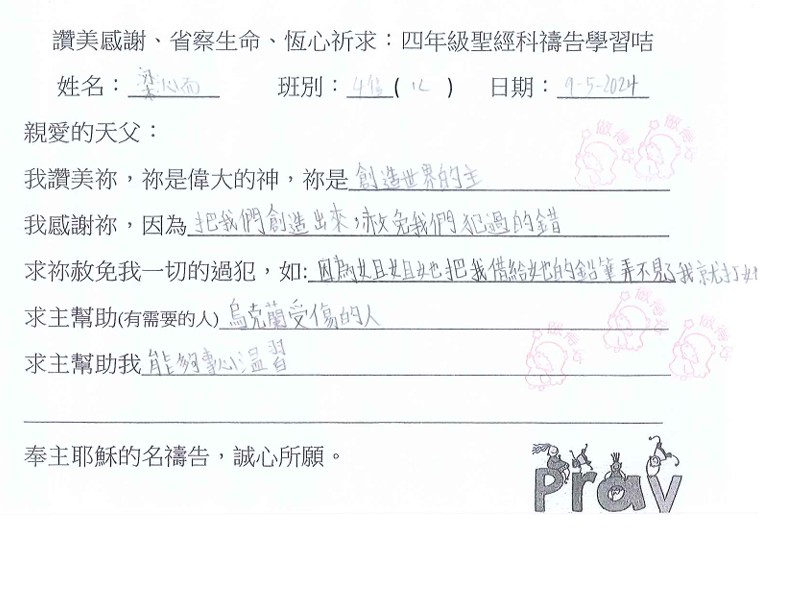 讚美感謝、省察生命、恆心祈求：四年級聖經科禱告學習咭
姓名： 梁心而 班別： 4信 ( 12 ) 日期： 9-5-2024
親愛的天父：
我讚美祢，祢是偉大的神，祢是 創造世界的主
我感謝祢，因為 把我們創造出來，赦免我們犯過的錯
求祢赦免我一切的過犯，如: 因為姐姐她把我借給她的鉛筆弄不見了我就打她
求主幫助(有需要的人) 烏克蘭受傷的人
求主幫助我 能夠專心温習
奉主耶穌的名禱告，誠心所願。
pray